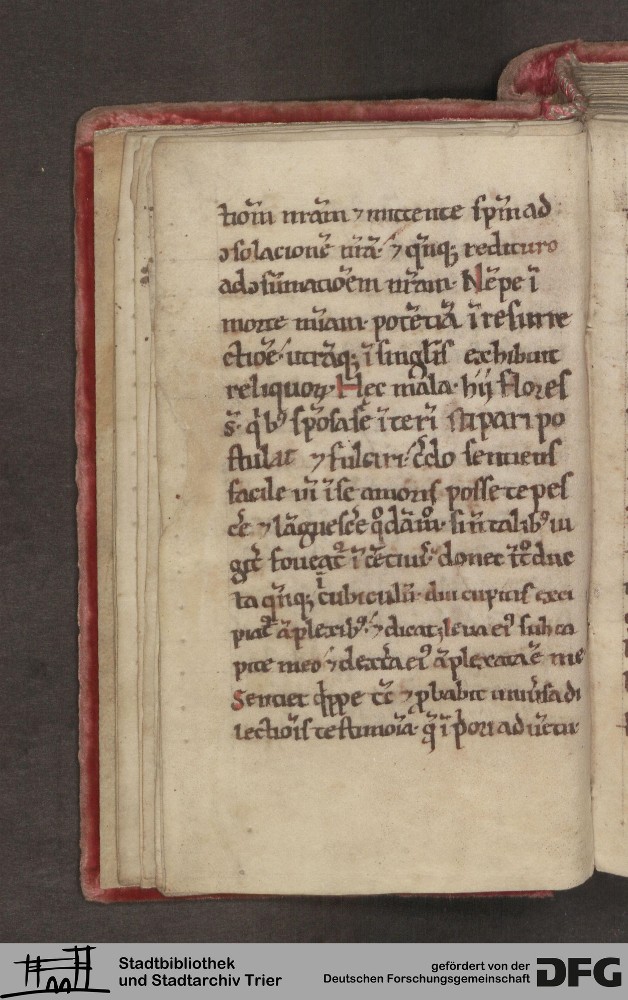 tiōm nr̄am ⁊ mittente sp̄m ad
ↄsolacionē nr̄a· ⁊ q̄nq; redituro
adↄsūmatiōem nr̄am· Nēpe ī
morte nr̄am· potētiā ī resurre
ctiōe· utrāq; ī singl̄is exhibuit
reliquoꝝ Hec māla· hij flores
s̄· qͥbꝰ sp̄osa se īterī stipari po
stulat ⁊ fulciri· c̄do sentiens
facile uī ī se amoris posse tepes
c̄e ⁊ lāguesc̄e qͦdāmͦ· si n̄ talibꝰ iu
git̄ foueat̄ ī c̄etiuis· donec it̄oduc
ta q̄nq; ī cubiculū· diu cupitis exci
piat̄ āplexibꝰ· ⁊ dicat; leua eiꝰ sub ca
pite meo ⁊ dext̄a eiꝰ āplexata ē me
Sentiet q̄ppe tc̄ ⁊ ꝓbabit uniūsa di
lectiōis testimoīa· q̄ ī p̄ori aduētu·
Stadtbibliothek
und Stadtarchiv Trier
gefördert von der
Deutschen Forschungsgemeinschaft
DFG